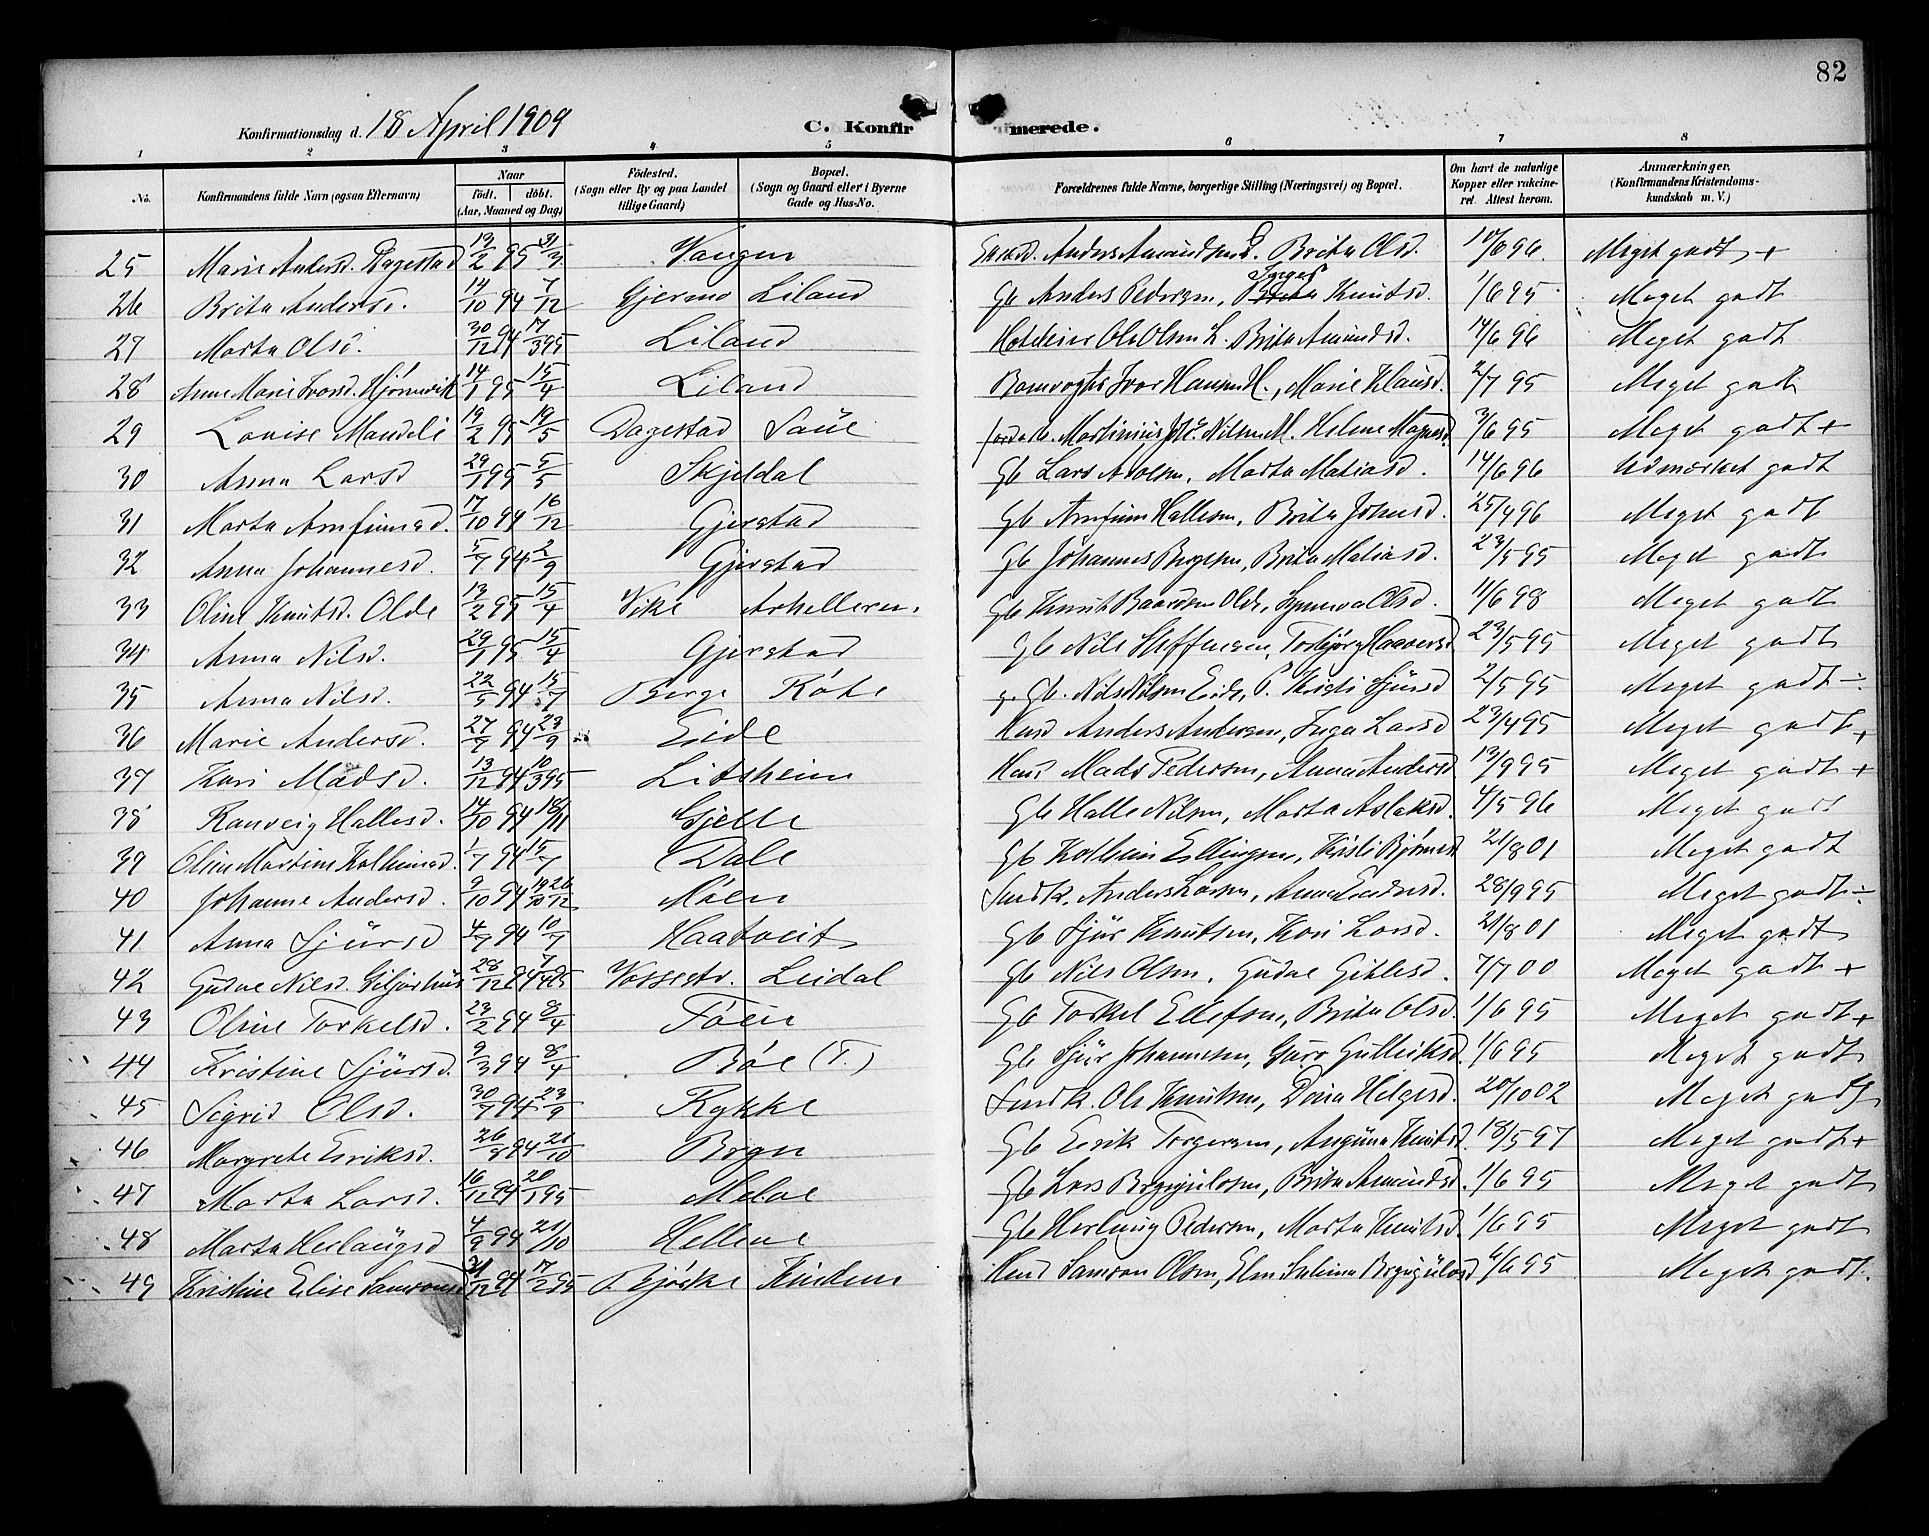 82
Konfirmationsdag d. 18 April 1909 C. Konfirmerede.
1 2 3 4 5 6 7 8
No. Konfirmandens fulde Navn (ogsaa Efternavn) Naar født. døbt. (Aar, Maaned og Dag) Fødested. (Sogn eller By og paa Landet tillige Gaard) Bopæl. (Sogn og Gaard eller i Byerne Gade og Hus-No. Forældrenes fulde Navne, borgerlige Stilling (Næringsvei) og Bopæl. Om havt de naturlige Kopper eller vakcineret Attest herom. Anmærkninger, (Konfirmandens Kristendomskundskab m. V.)
25 Marie Andersd. Dagestad 13/2 95 31/3 Vangen Anders Amundsen D. Brita Olsd. 14/6 96 Meget godt +
26 Brita Andersd. 14/10 94 7/12 Gjermo Liland Gb Anders Pedersen, Knutsd. 1/6 95 Meget godt
27 Marta Olsd. 30/12 94 17/3 95 Liland Ole Olsen L. Brita Amundsd. 14/6 96 Meget godt
28 Anne Marie Ivarsd. Hjørnevik 14/1 95 15/4 Liland Banevogter Ivar Hansen H., Marie Klausd. 2/7 95 Meget godt
29 Louise Mandeli 19/2 95 19/5 Dagestad Saue Martinius Nilsen M. Helene Magnesd. 3/6 95 Meget godt +
30 Anna Larsd 29/1 95 5/5 Skjeldal Gb Lars Marta Matiasd. 14/6 96 Udmærket godt
31 Marta Arnfinnsd. 17/10 94 16/12 Gjerstad Gb Arnfinn Hallesen, Brita Johnsd. 25/4 96 Meget godt
32 Anna Johannesd. 5/7 94 2/9 Gjerstad Gb Johannes Brita Matiasd. 23/5 95 Meget godt
33 Oline Knutsd. Olde 13/2 95 15/4 Vike Gb Knut Baardsen Olde, Synneva Olsd. 11/6 98 Meget godt
34 Anna Nilsd. 29/1 95 15/4 Gjerstad Gb Nils Steffensen, Torbjørg 23/5 95 Meget godt
35 Anna Nilsd. 22/5 94 15/7 Berge Røte Gb. Nils Nilsen Eide, Kristi Sjursd 2/5 95 Meget godt ÷
36 Marie Andersd. 27/7 94 23/9 Eide Husd Anders Andersen, Inga Larsd 23/4 95 Meget godt +
37 Kari Madsd. 13/12 94 10/3 95 Litsheim Husd Mads Pedersen, Anna Andersd 13/9 95 Meget godt +
38 Ranveig Hallesd. 14/10 94 18/11 Gjelle Gb Halle Nilsen, Marta Aslaksd. 4/5 96 Meget godt
39 Oline Martine Kolbeinsd. 1/7 94 15/7 Dale Gb Kolbein Ellingsen, Kristi Bjørnsd 21/8 01 Meget godt
40 Johanne Andersd. 9/10 94 14/10 26/12 Møen Anders Larsen, Anna 28/9 95 Meget godt ÷
41 Anna Sjursd 4/7 94 10/7 Haatveit Gb Sjur Knutsen, Kari Larsd. 21/8 01 Meget godt
42 Gudve Nilsd. Giljarhus 28/12 94 7/4 95 Vossestr. Leidal Gb Nils Olsen, Gudve Giklesd. 7/7 00 Meget godt +
43 Oline Torkelsd. 23/2 94 8/4 Tøen Gb Torkel Ellefsen, Brita Olsd 1/6 95 Meget godt +
44 Kristine Sjursd. 9/3 94 8/4 Bøe (T.) Gb Sjur Johannesen, Guro Gulleiksd. 1/6 95 Meget godt
45 Sigrid Olsd. 30/7 94 23/9 Rykke Ole Knutsen, Helgesd. 20/10 02 Meget godt
46 Margrete Eriksd. 26/8 94 21/10 Bryn Gb Eirik Torgersen, Angunn Knutsd. 18/5 97 Meget godt +
47 Marta Larsd. 16/12 94 20/1 95 Melve Gb Lars Brynjulvsen, Brita Amundsd. 1/6 95 Meget godt
48 Marta Herlaugsd 4/9 94 21/10 Hellene Gb Herlaug Pedersen, Marta Knutsd. 1/6 95 Meget godt
49 Kristine Elise Samsonsd 31/12 94 17/2 95 Bjørke Kinden Husd Samson Olsen, Brynjulvsd 6/6 95 Meget godt.